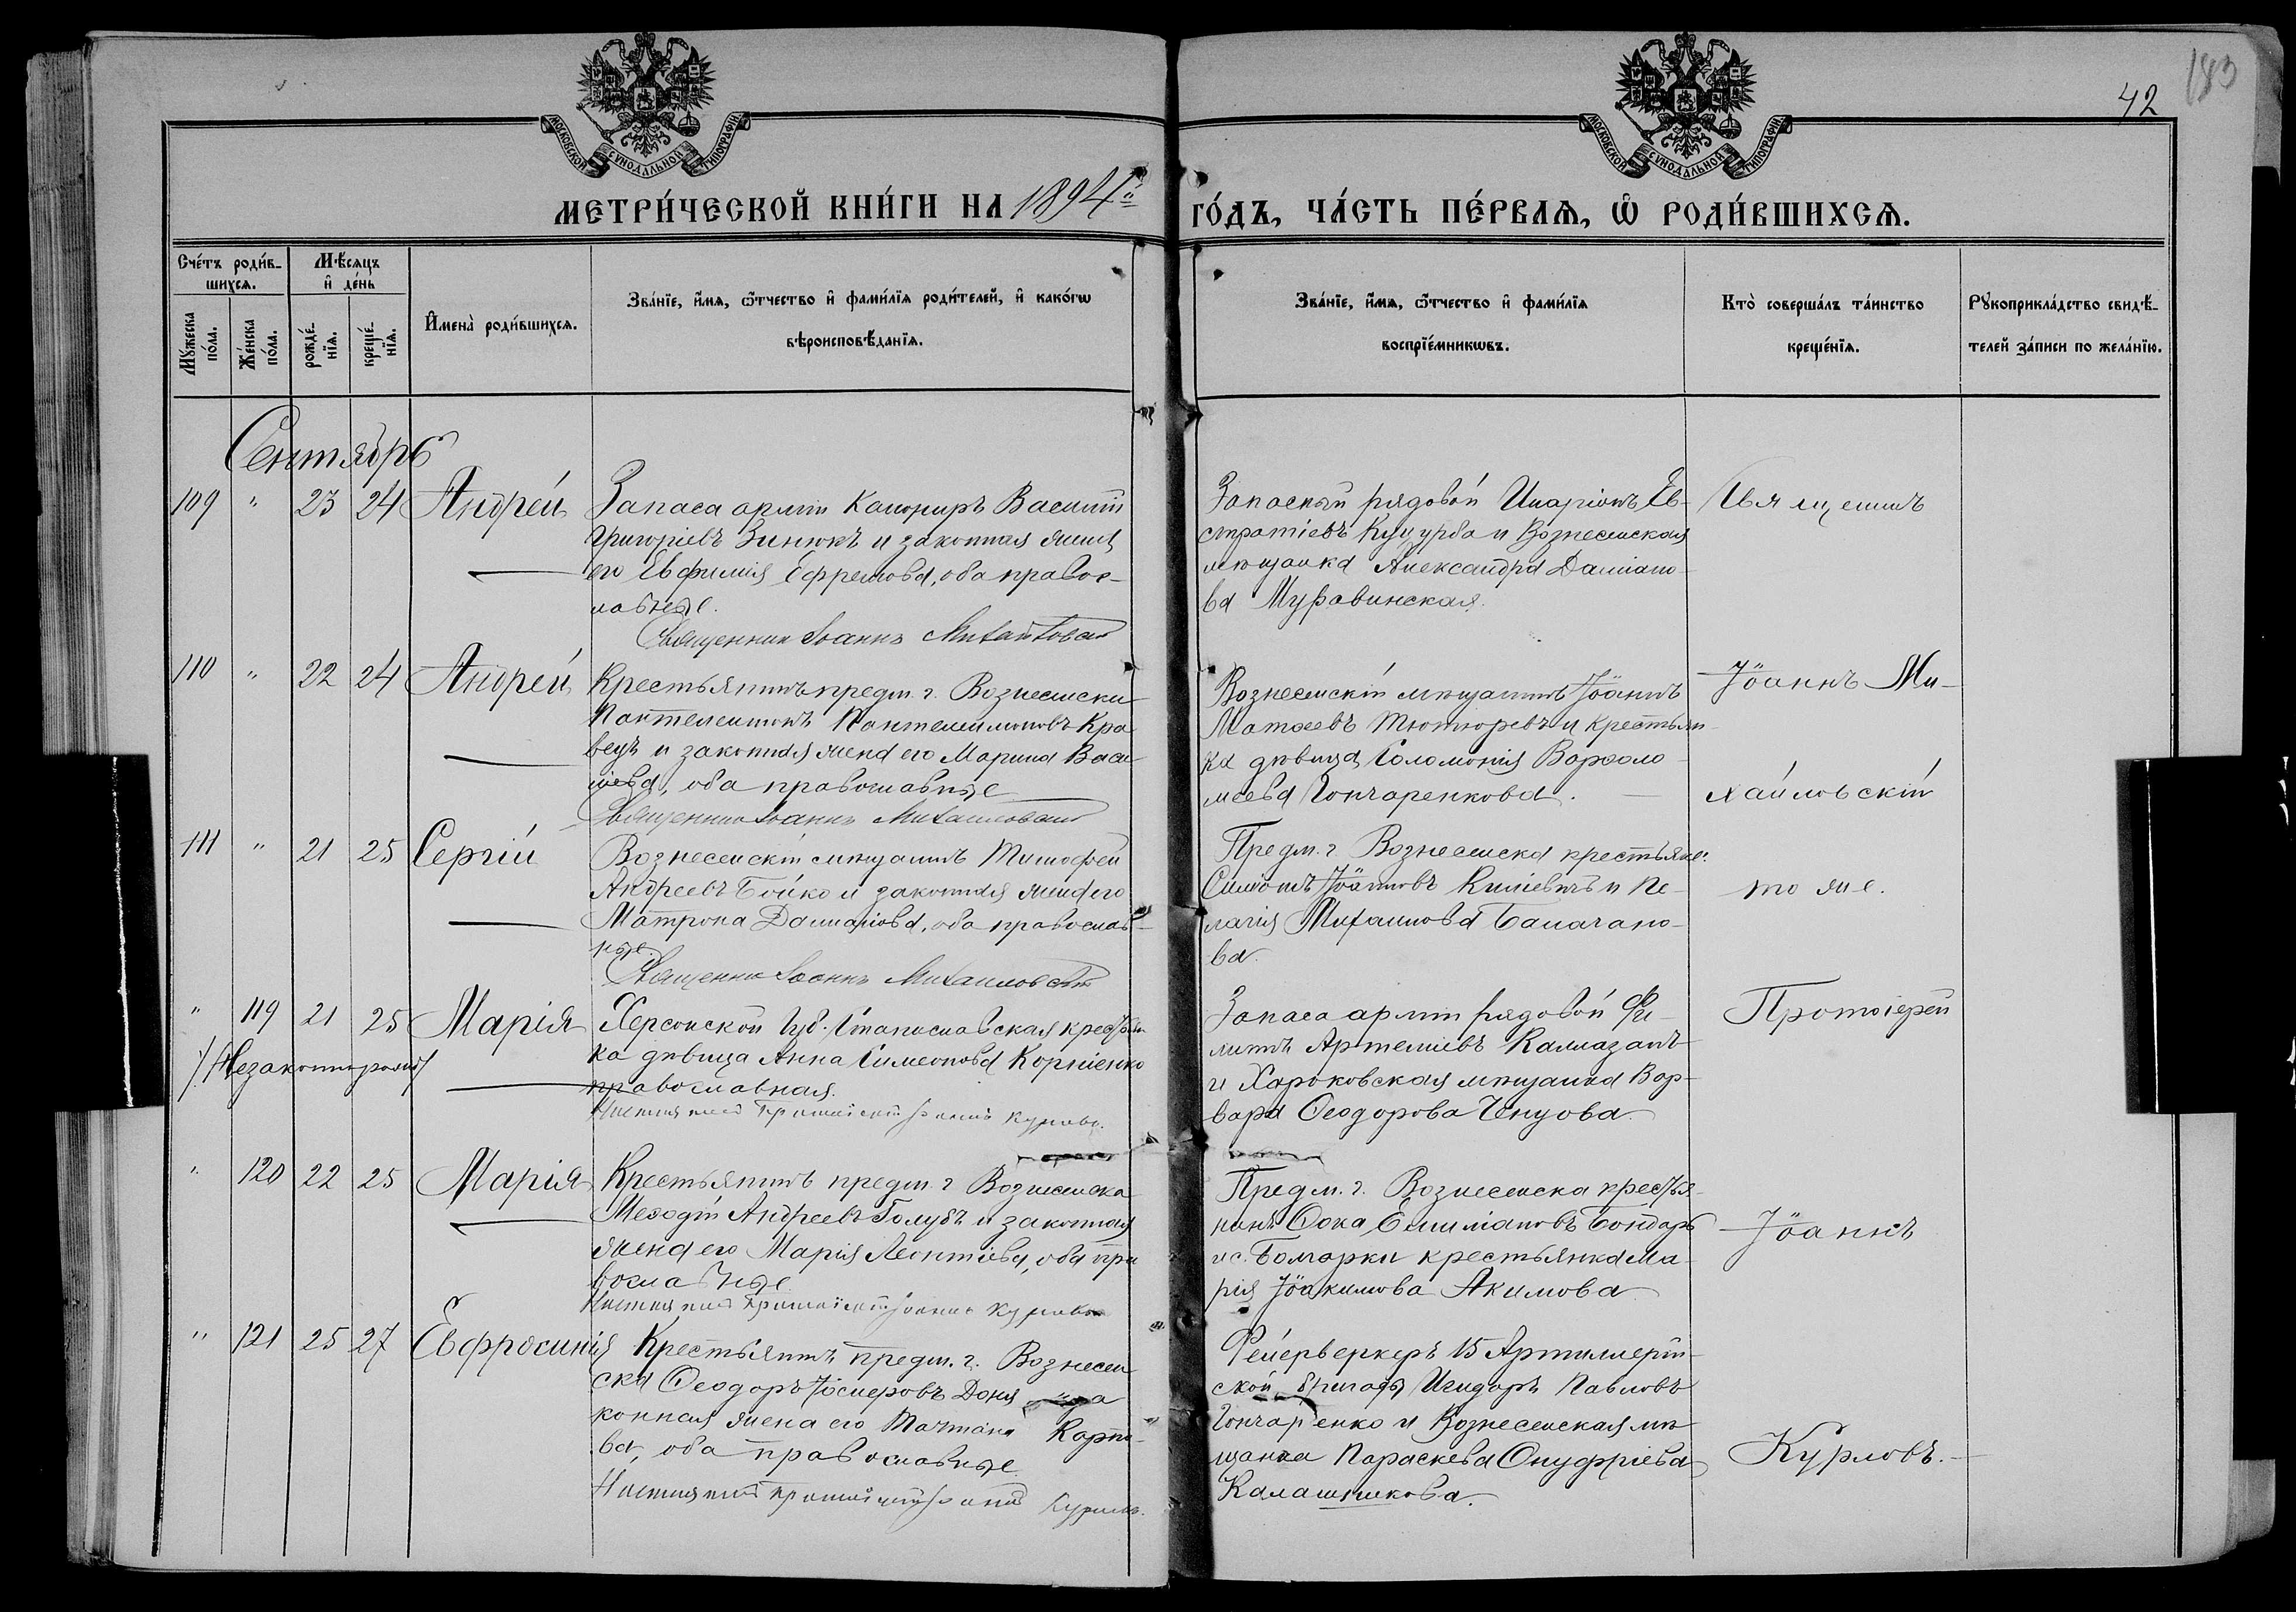 183
42
МОСКОВСКОЙ СѴНОДАЛЬНОЙ ТИПОГРАФІИ
МОСКОВСКОЙ СѴНОДАЛЬНОЙ ТИПОГРАФІИ
МЕТРИ́ЧЕСКОЙ КНИ́ГИ НА 1894й ГО́ДЪ, ЧА́СТЬ ПЕ́РВАЯ, Ѡ РОДИ́ВШИХСЯ.
Сче́тъ роди́в-
шихся.
Мѣ́сяцъ
и де́нь
Му́жеска
по́ла.
Же́нска
по́ла.
рожде́-
нїя.
креще́-
нїя.
Имена̀ роди́вшихся.
Зва́нїе, и́мя, ѻ́тчество и фами́лїя роди́телей, и како́гѡ
вѣроисповѣ́данїя.
Зва́нїе, и́мя, ѻ́тчество и фами́лїя
воспрїе́мникѡвъ.
Кто̀ соверша́лъ та́инство
креще́нїя.
Рꙋкоприкла́дство свидѣ́-
телей за́писи по жела́нїю.
Сентябрь
109 " 23 24 Андрей
Запаса арміи Канониръ Василій
Григоріевъ Зинюкъ и законная жена
его Евфимія Ефремова, оба правос-
лавные.
Священникъ Іоаннъ Михайловскій
Запасный рядовой Иларіонъ Ев-
стратіевъ Куцурба и Вознесенская
мѣщанка Александра Даміано-
ва Муравинская.
Священникъ
110 " 22 24 Андрей
Крестьянинъ предм. г. Вознесенска
Пантелеимонъ Пантелеимоновъ Кра
вецъ и законная жена его Марина Васи
лiева, оба православные
Священникъ Іоаннъ Михайловскій
Вознесенскій мѣщанинъ Іоаннъ
Матѳеевъ Тютюревъ и крестьян-
ка дѣвица Соломонія Варѳоло-
меева Гончаренкова.
Іоаннъ Ми-
хайловскій
111 " 21 25 Сергій
Вознесенскій мѣщанинъ Тимофей
Андреевъ Бойко и законная жена его
Матрона Даміанова, оба православ-
ные.
Священникъ Іоаннъ Михайловскій
Предм. г. Вознесенска крестьяне:
Симеонъ Іоанновъ Килiевичъ и Пе-
лагія Михаилова Балагано-
ва.
тоже.
" 119 21 25 Марія
Незаконнорожд
Херсонской Губ. Станиславская крестьян
ка дѣвица Анна Симеонова Корніенко
православная.
Запаса арміи рядовой Фи-
липъ Артеміевъ Калмазанъ
и Харьковская мѣщанка Вар-
вара Ѳеодорова
Протоіерей
" 120 22 25 Марія
Крестьянинъ предм. г Вознесенска
Меѳодій Андреевъ Голубъ и законная
жена его Марія Леонтіева, оба пра
вославные
Предм. г. Вознесенска крестья-
нинъ Ѳока Емиліановъ Бондарь
и с. Болгарки крестьянка Ма-
рія Іоакимова Акимова
Іоаннъ
" 121 25 27 Евфросинія
Крестьянинъ предм. г. Вознесен
ска Ѳеодоръ Іосифовъ Доня и за
конная жена его Татіана Карпо-
ва, оба православные
Фейерверкеръ 15 Артиллерій-
ской бригады Исидоръ Павловъ
Гончаренко и Вознесенская мѣ
щанка Параскева Онуфріева
Калашникова.
Курловъ.